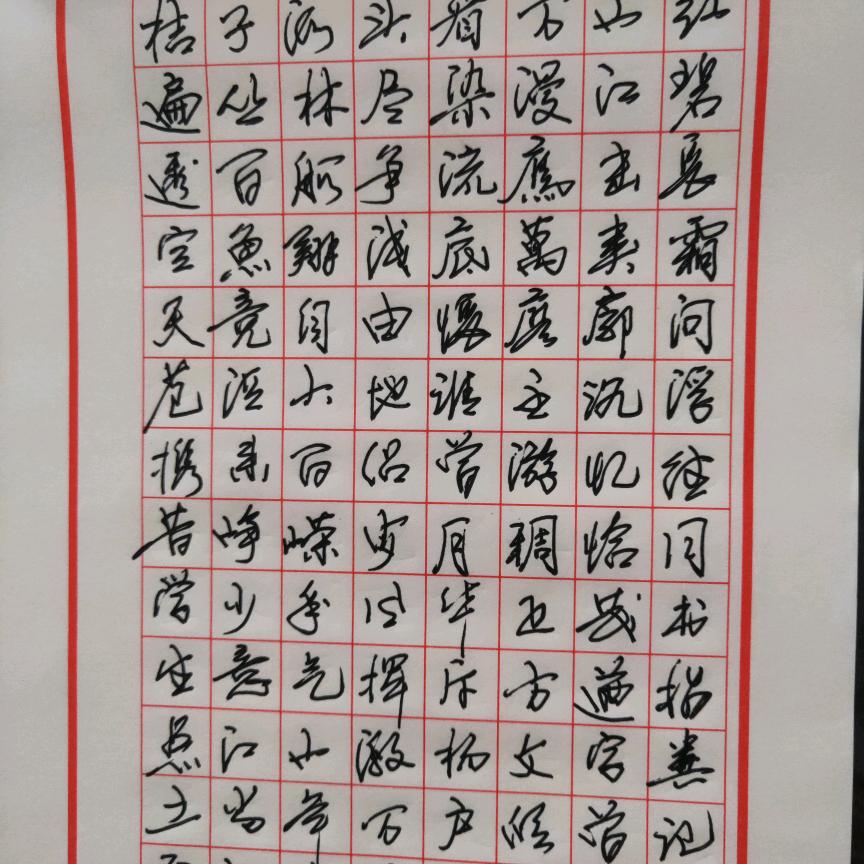 桔子洲头看万山红
遍丛林尽染漫江碧
透百舸争流鷹击長
空魚翔浅底萬类霜
天竞自由怅寥廓问
苍茫大地谁主沉浮
携来百侣曾游忆往
昔峥嵘岁月稠恰同
学少年风华正茂书
生意气挥斥方遒指
点江山激扬文字粪
土当年万户侯曾记